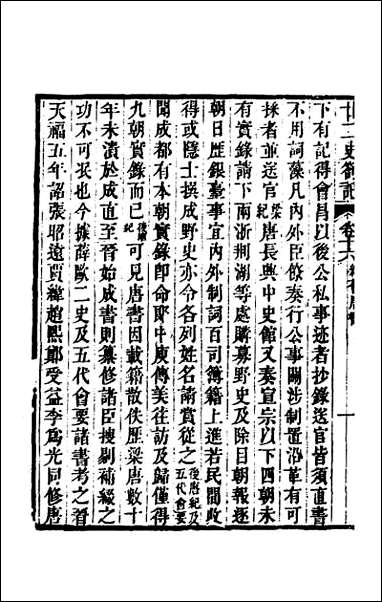 廿二史劄記 卷十六 新舊唐書 一
下有記得會昌以後公私事迹者抄錄送官皆須直書
不用詞藻凡內外臣僚奏行公事關涉制置沿革有可
採者並送官梁紀唐長興中史館又奏宣宗以下四朝未
有實錄請下兩浙荆湖等處購募野史及除目朝報逐
朝日歷銀臺事宜內外制詞百司簿籍上進若民間收
得或隱士撰成野史亦令各列姓名請賞從之後唐紀及五代會要
聞成都有本朝實錄卽命郎中庾傳美往訪及歸僅得
九朝實錄而已後唐紀可見唐書因載籍散佚歷梁唐數十
年未潰於成直至晉始成書則纂修諸臣搜剔補綴之
功不可泯也今據薛歐二史及五代會要諸書考之晉
天福五年詔張昭遠賈緯趙熙鄭受益李爲光同修唐